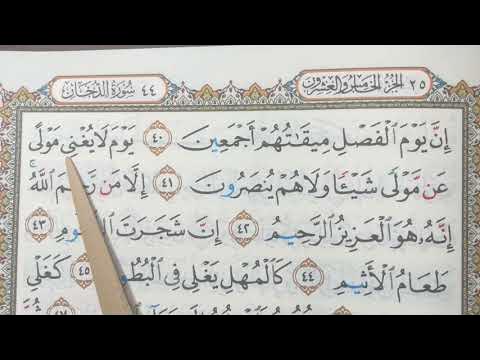 ٢٥ الجزء الخامس والعشرون
٤٤ سورة الدخان
إِنَّ يَوْمَ ٱلْفَصْلِ مِيقَـٰتُهُمْ أَجْمَعِينَ ٤٠ يَوْمَ لَا يُغْنِى مَوْلًى
عَن مَّوْلًى شَيْـًٔا وَلَا هُمْ يُنصَرُونَ ٤١ إِلَّا مَن رَّحِمَ ٱللَّهُ ۚ
إِنَّهُۥ هُوَ ٱلْعَزِيزُ ٱلرَّحِيمُ ٤٢ إِنَّ شَجَرَتَ ٤٣
طَعَامُ ٱلْأَثِيمِ ٤٤ كَٱلْمُهْلِ يَغْلِى فِى ٤٥ كَغَلْىِ